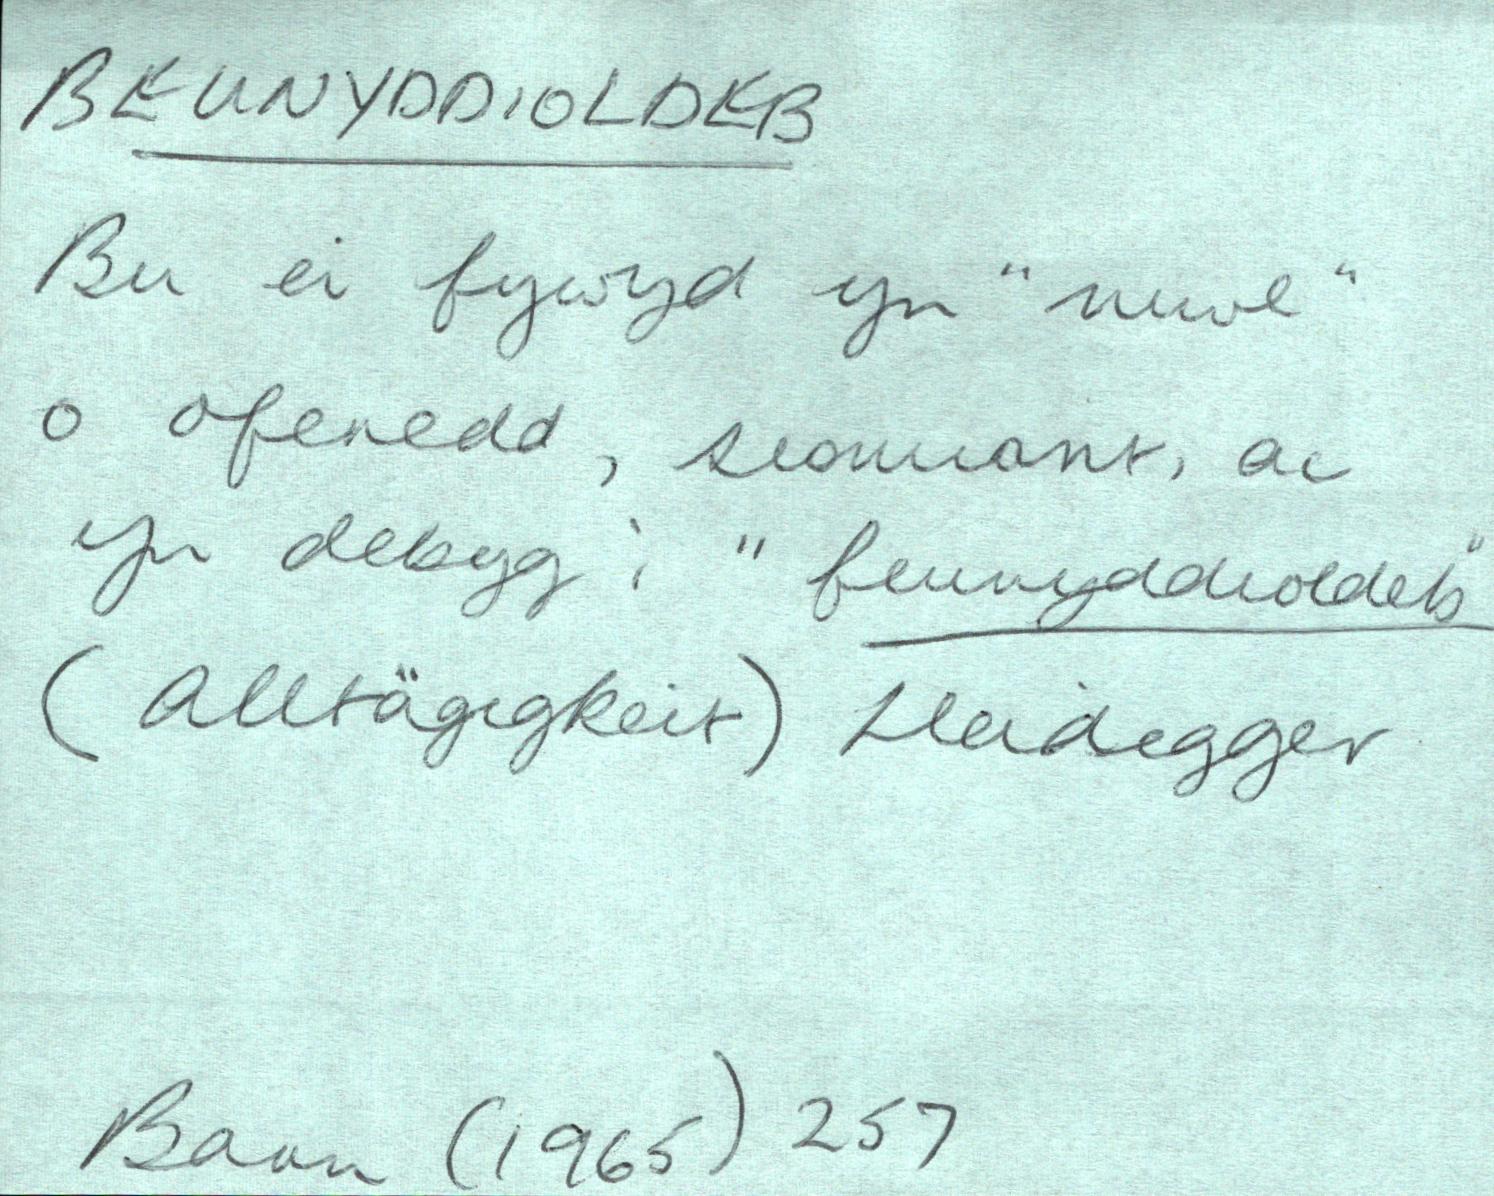 BEUNYDDIOLDEB
Bu ei fywyd yn "niwl"
o oferedd, siommant, ac
yn debyg i "feunyddioldeb"
(Alltägigkeit) Heidegger
Barn (1965) 257